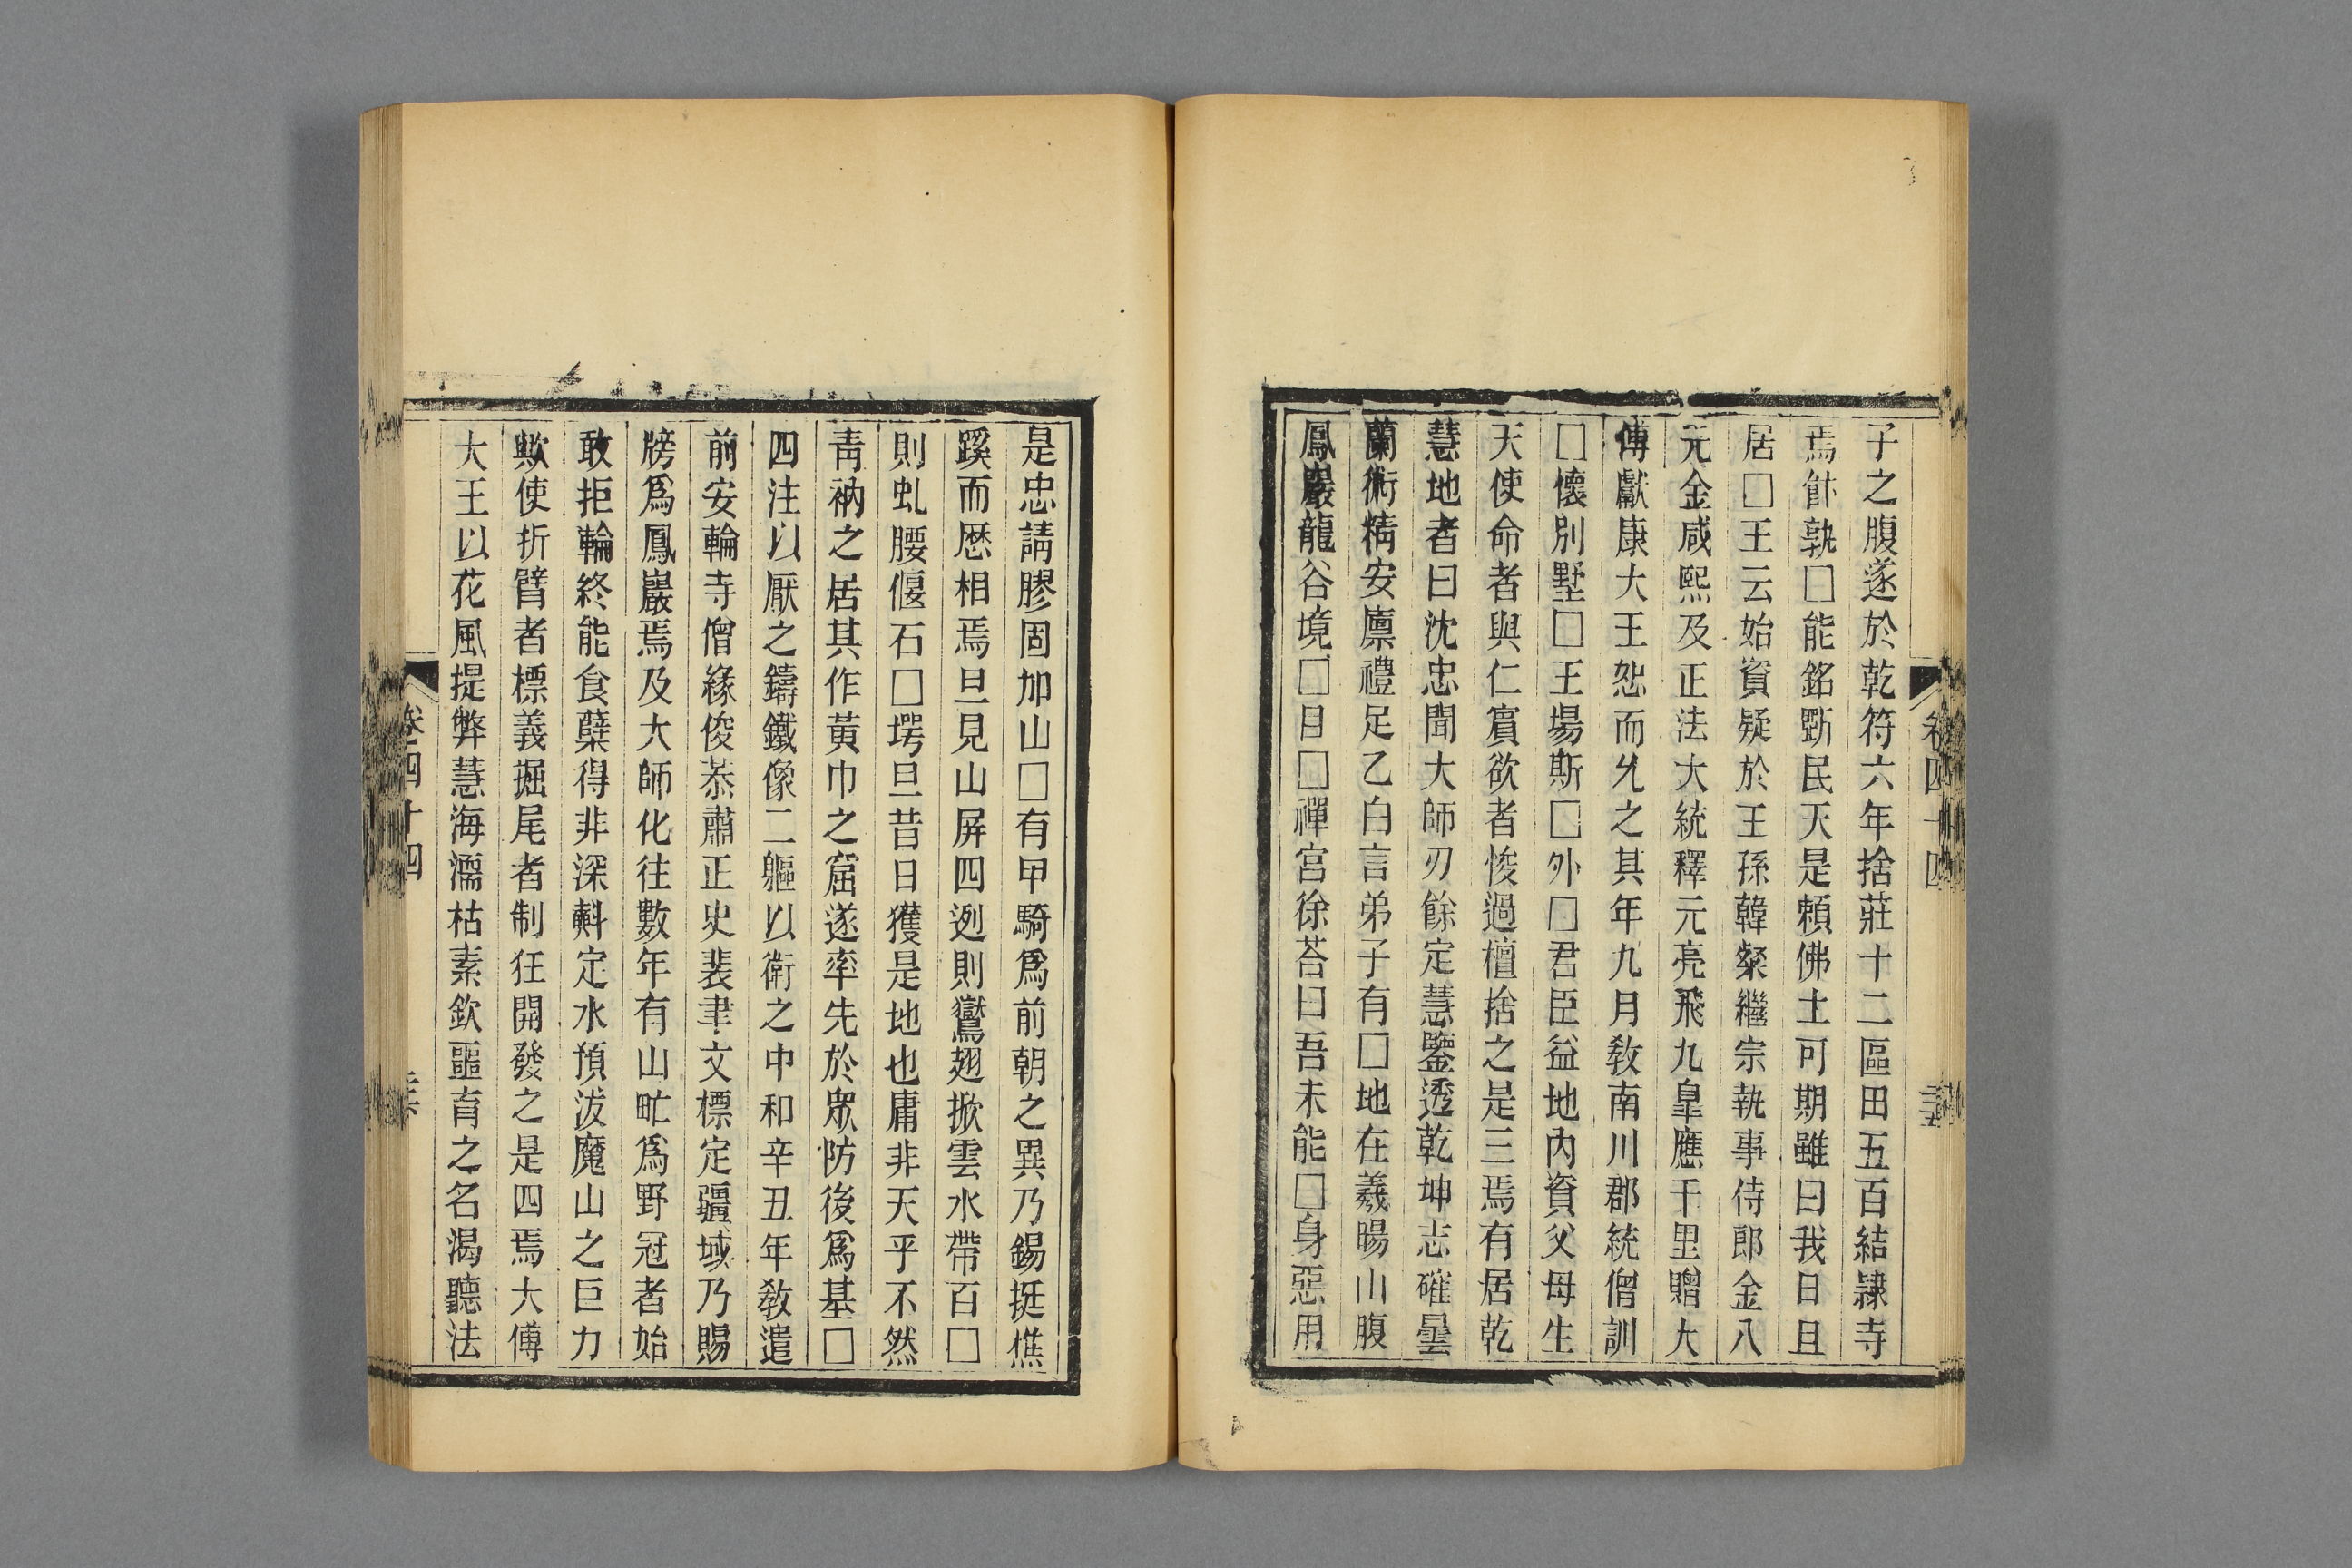 子之腹遂於乾符六年捨莊十二區田五百結隷寺
焉飰孰□能銘斲民天是賴佛土可期雖曰我日且
居□王云始資疑於王孫韓粲繼宗執事侍郎金八
元金咸熙及正法大統釋元亮飛九皐應千里贈大
傅獻康大王恕而允之其年九月敎南川郡統僧訓
□懷別墅□王場斯□外□君臣益地內資父母生
天使命者與仁賓欲者悛過檀捨之是三焉有居乾
慧地者曰沈忠聞大師刃餘定慧鑒透乾坤志礭曇
蘭術精安廩禮足乙白言弟子有□地在羲暘山腹
鳳巖龍谷境□目□禪宫徐荅曰吾未能□身惡用
卷四十四
是忠請膠固加山□有甲騎爲前朝之異乃錫挺樵
蹊而厯相焉旦見山屏四迾則鸑翅掀雲水帶百□
則虬腰偃石□堮旦昔曰獲是地也庸非天乎不然
靑衲之居其作黃巾之窟遂率先於眾防後爲基□
四注以厭之鑄鐵像二軀以衛之中和辛丑年敎遣
前安輪寺僧緣俊恭肅正史裴聿文標定疆域乃賜
牓爲鳳巖焉及大師化往數年有山甿爲野冠者始
敢拒輪終能食蘖得非深斞定水預沷魔山之巨力
歟使折臂者標義掘尾者制狂開發之是四焉大傅
大王以花風掃弊慧海濡枯素欽靈育之名渴聽法
卷四十四